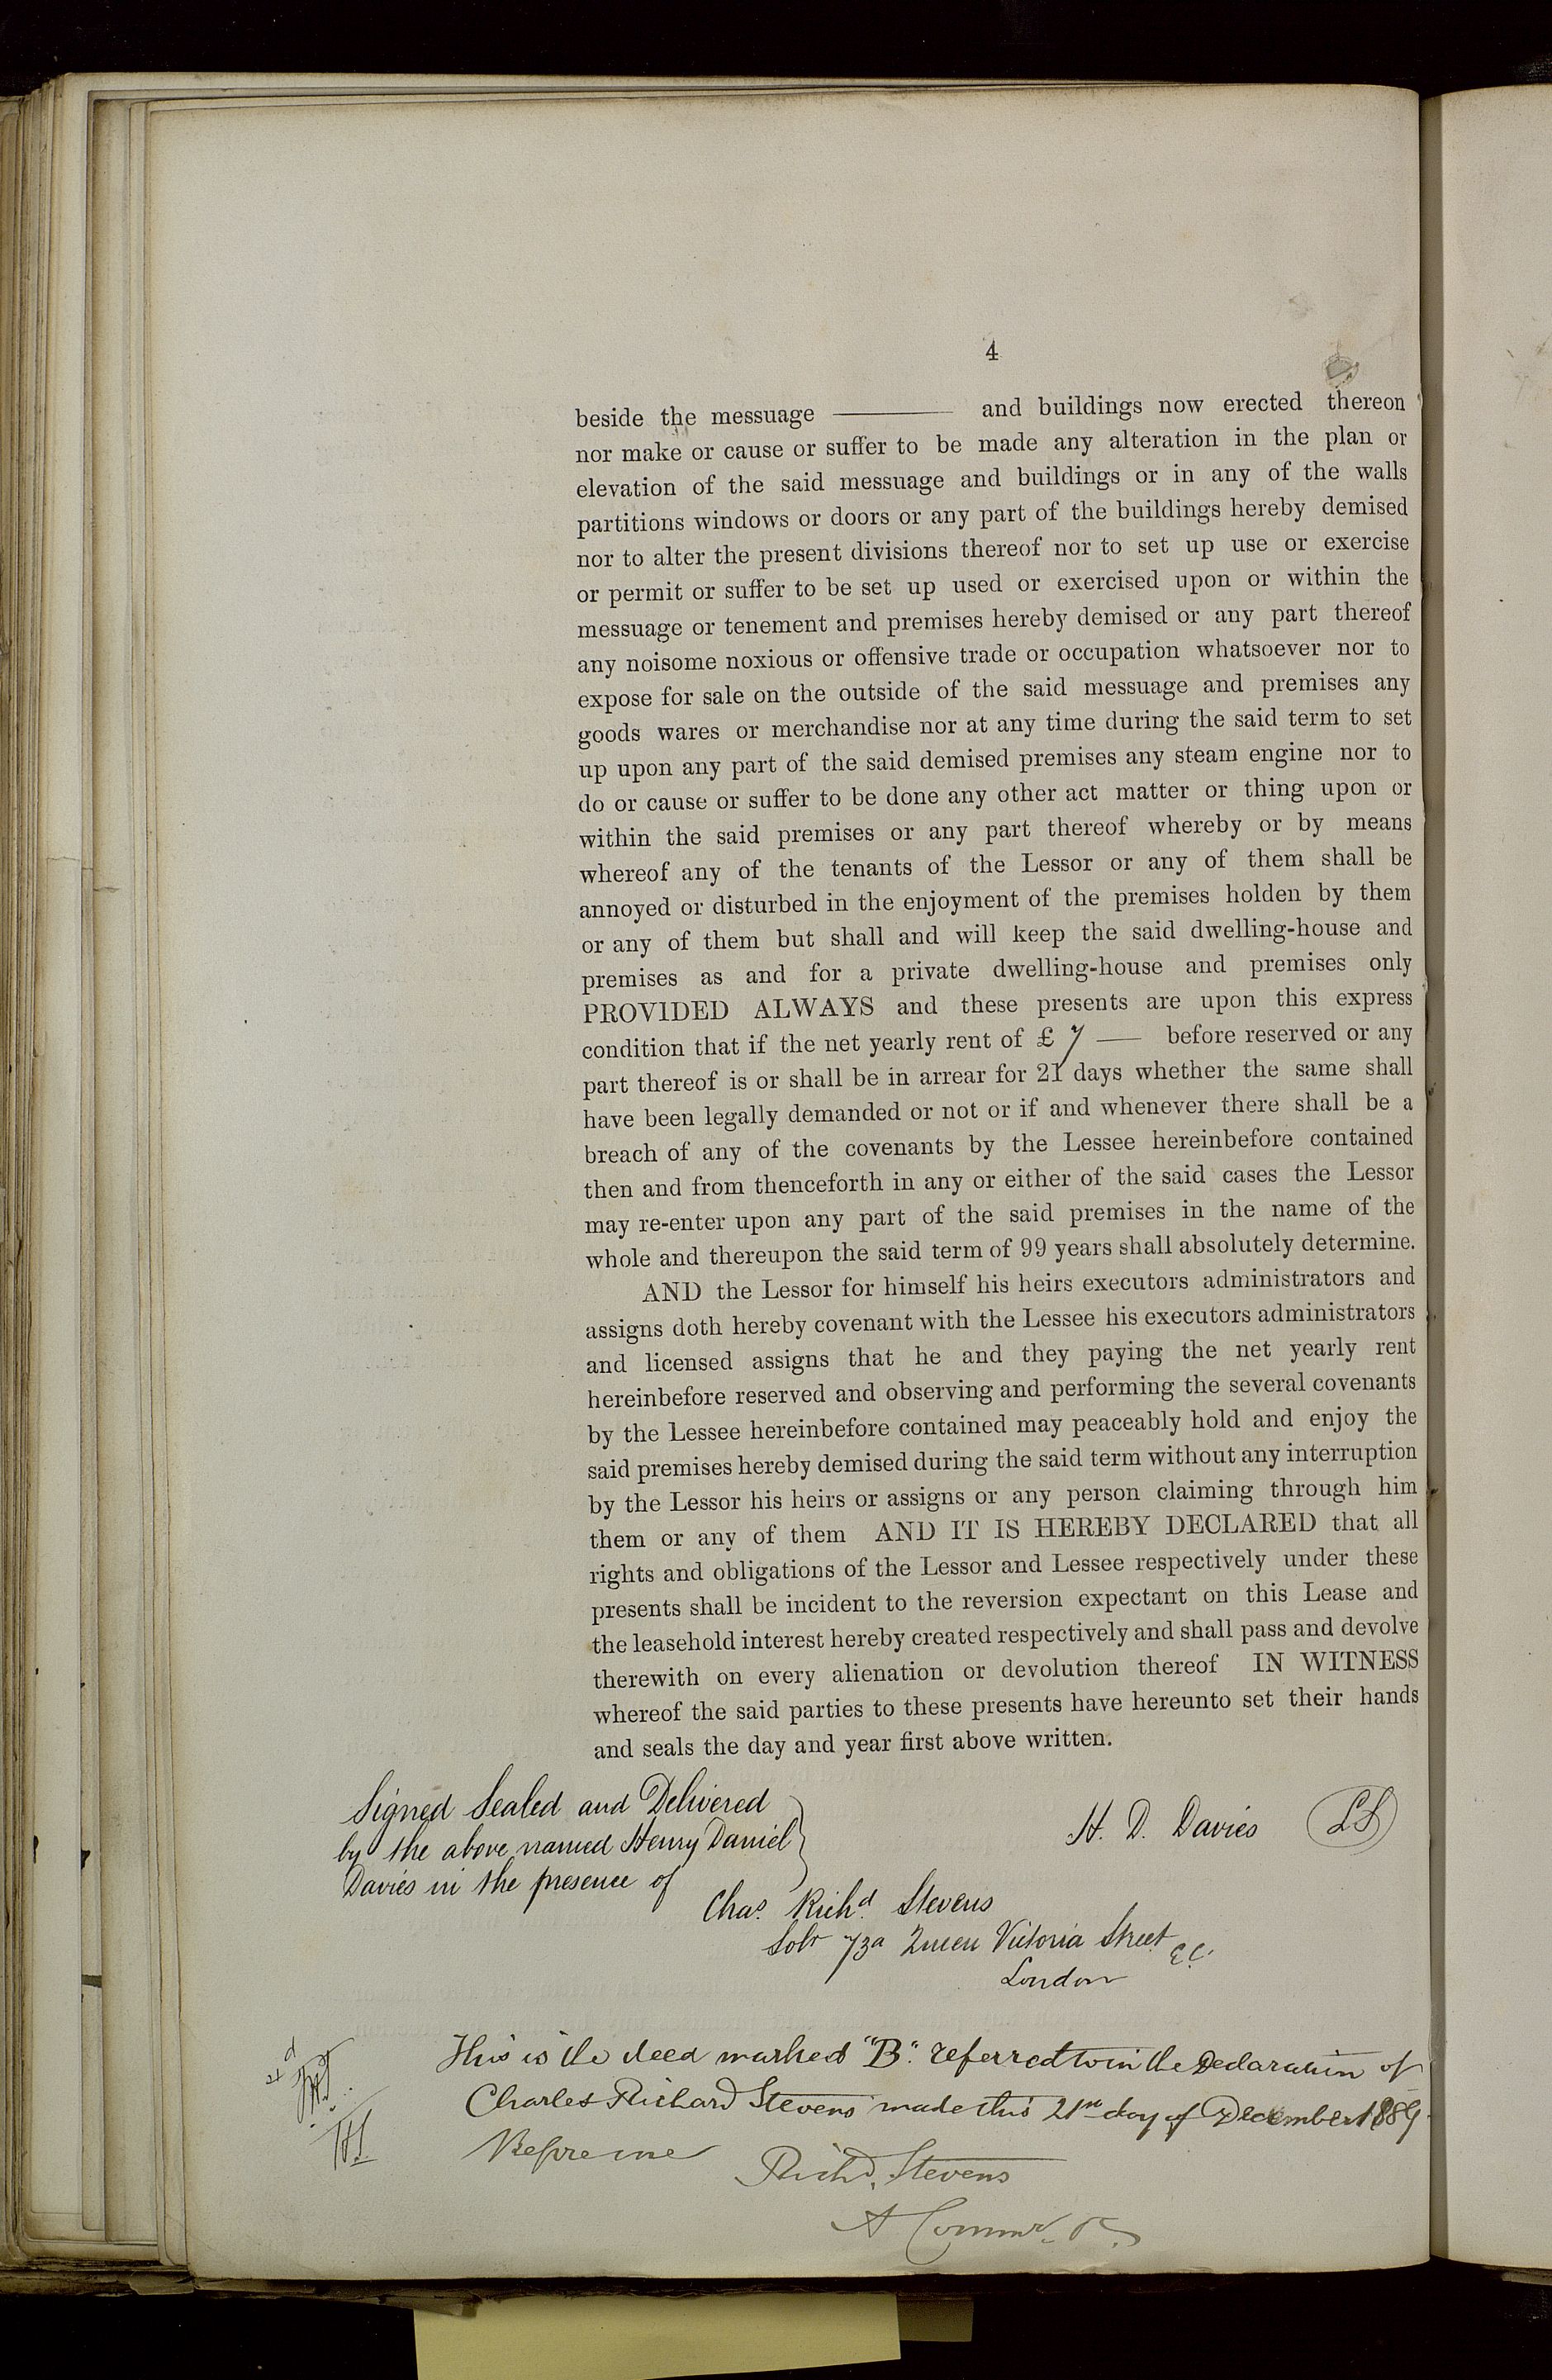 4
beside the messuage ——— and buildings now erected thereon
nor make or cause or suffer to be made any alteration in the plan or
elevation of the said messuage and buildings or in any of the walls
partitions windows or doors or any part of the buildings hereby demised
nor to alter the present divisions thereof nor to set up use or exercise
or permit or suffer to be set up used or exercised upon or within the
messuage or tenement and premises hereby demised or any part thereof
any noisome noxious or offensive trade or occupation whatsoever nor to
expose for sale on the outside of the said messuage and premises any
goods wares or merchandise nor at any time during the said term to set
up upon any part of the said demised premises any steam engine nor to
do or cause or suffer to be done any other act matter or thing upon or
within the said premises or any part thereof whereby or by means
whereof any of the tenants of the Lessor or any of them shall be
annoyed or disturbed in the enjoyment of the premises holden by them
or any of them but shall and will keep the said dwelling-house and
premises as and for a private dwelling-house and premises only
PROVIDED ALWAYS and these presents are upon this express
condition that if the net yearly rent of £ 7 — before reserved or any
part thereof is or shall be in arrear for 21 days whether the same shall
have been legally demanded or not or if and whenever there shall be a
breach of any of the covenants by the Lessee hereinbefore contained
then and from thenceforth in any or either of the said cases the Lessor
may re-enter upon any part of the said premises in the name of the
whole and thereupon the said term of 99 years shall absolutely determine.
AND the Lessor for himself his heirs executors administrators and
assigns doth hereby covenant with the Lessee his executors administrators
and licensed assigns that he and they paying the net yearly rent
hereinbefore reserved and observing and performing the several covenants
by the Lessee hereinbefore contained may peaceably hold and enjoy the
said premises hereby demised during the said term without any interruption
by the Lessor his heirs or assigns or any person claiming through him
them or any of them AND IT IS HEREBY DECLARED that all
rights and obligations of the Lessor and Lessee respectively under these
presents shall be incident to the reversion expectant on this Lease and
the leasehold interest hereby created respectively and shall pass and devolve
therewith on every alienation or devolution thereof IN WITNESS
whereof the said parties to these presents have hereunto set their hands
and seals the day and year first above written.
Signed Sealed and Delivered
by the above named Henry Daniel
Davies in the presence of
H. D. Davies LS
Chas. Richd. Stevens
Solr 73a Queen Victoria Street E.C.
London
This is the deed marked "B". referred to in the Declaration of
Charles Richard Stevens made this 21st day of December 1889
Before me
Richd. Stevens
A Commr.